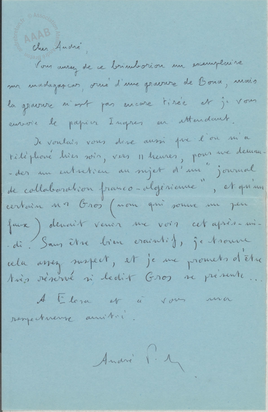 AAAB
Cher André,
Vous aurez de ce brimborion un exemplaire
sur madagascar, orné d'une gravure de Bona, mais
la gravure n'est pas encore tirée et je vous
envoie le papier en attendant.
Je voulais vous dire aussi que l'on m'a
téléphoné hier soir, vers 11 heures, pour me deman-
der un entretien au sujet d'un "journal
de collaboration franco-algérienne", et qu'un
certain Mr Gros (nom qui sonne un peu
faux) devrait venir me voir cet après-mi-
di. Sans être bien craintif, je trouve
cela assez suspect, et je me promets d'être
très réservé si ledit Gros se présente...
A Elisa et à vous mon
respectueuse amitié.
André P. M